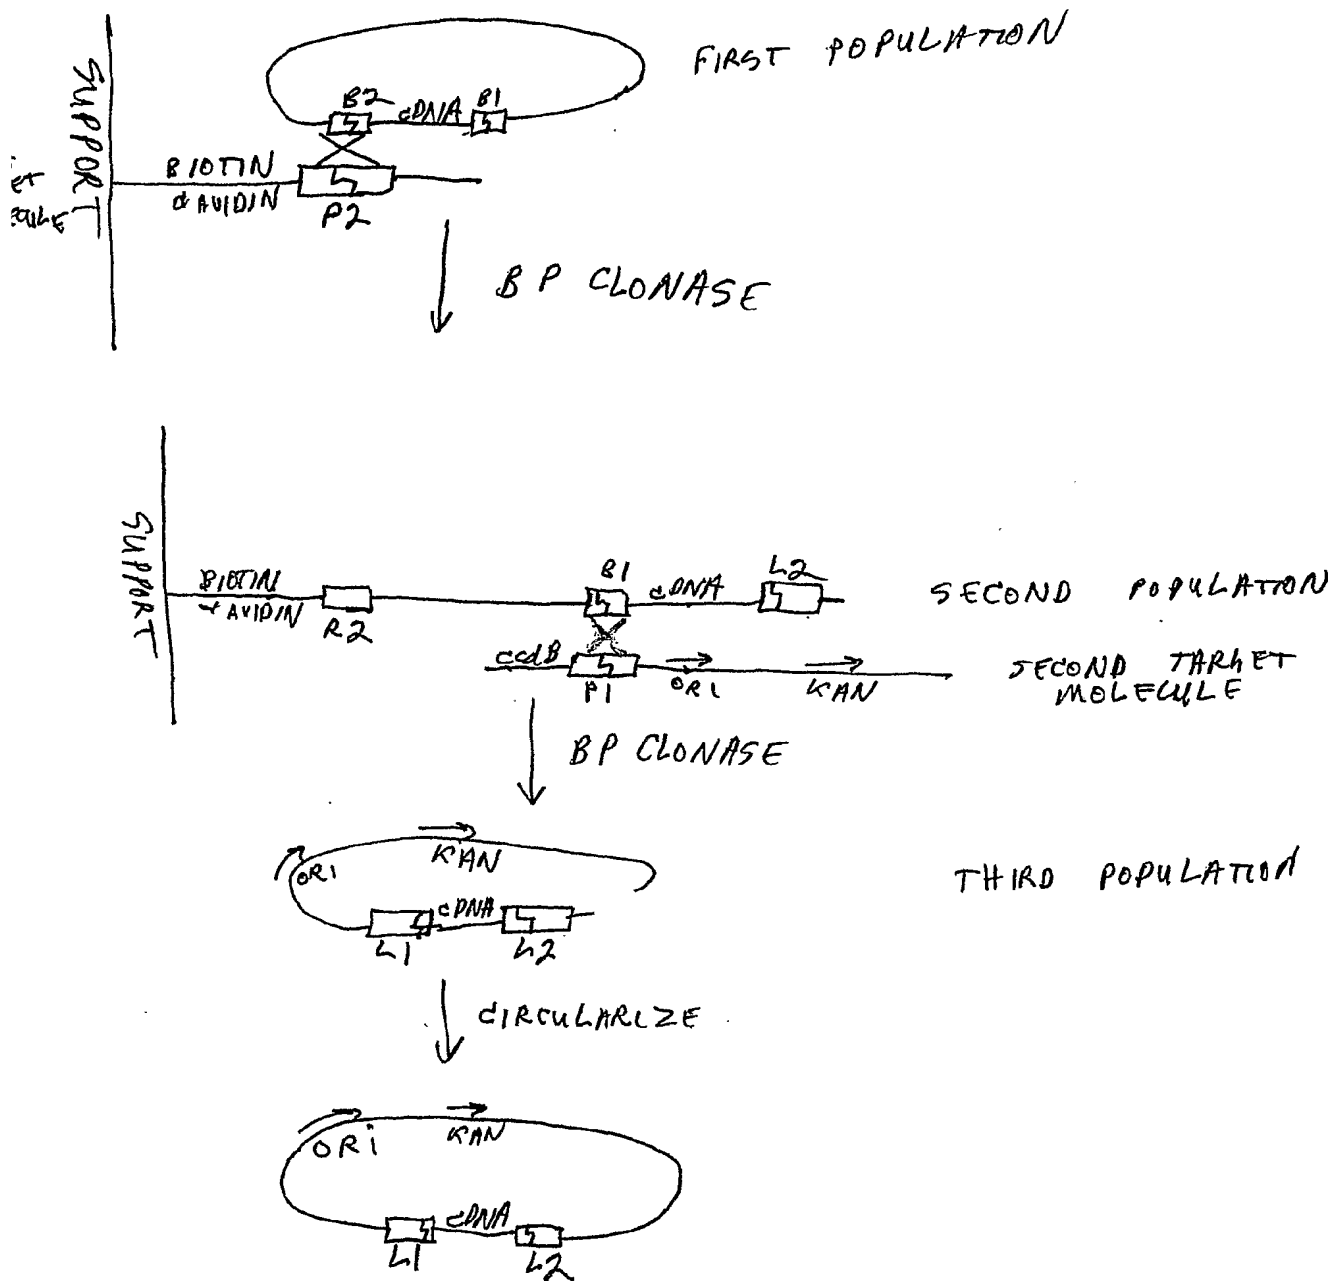 FIRST POPULATION
SUPPORT
B2 cDNA B1
BIOTIN
AVIDIN
P2
ET
BP CLONASE
SUPPORT
BIOTIN
AVIDIN
R2
B1 cDNA L2
SECOND POPULATION
ccdB
P1
ORI
KAN
SECOND TARGET
MOLECULE
BP CLONASE
ORI
KAN
THIRD POPULATION
cDNA
L1
L2
CIRCULARIZE
ORi
KAN
cDNA
L1
L2